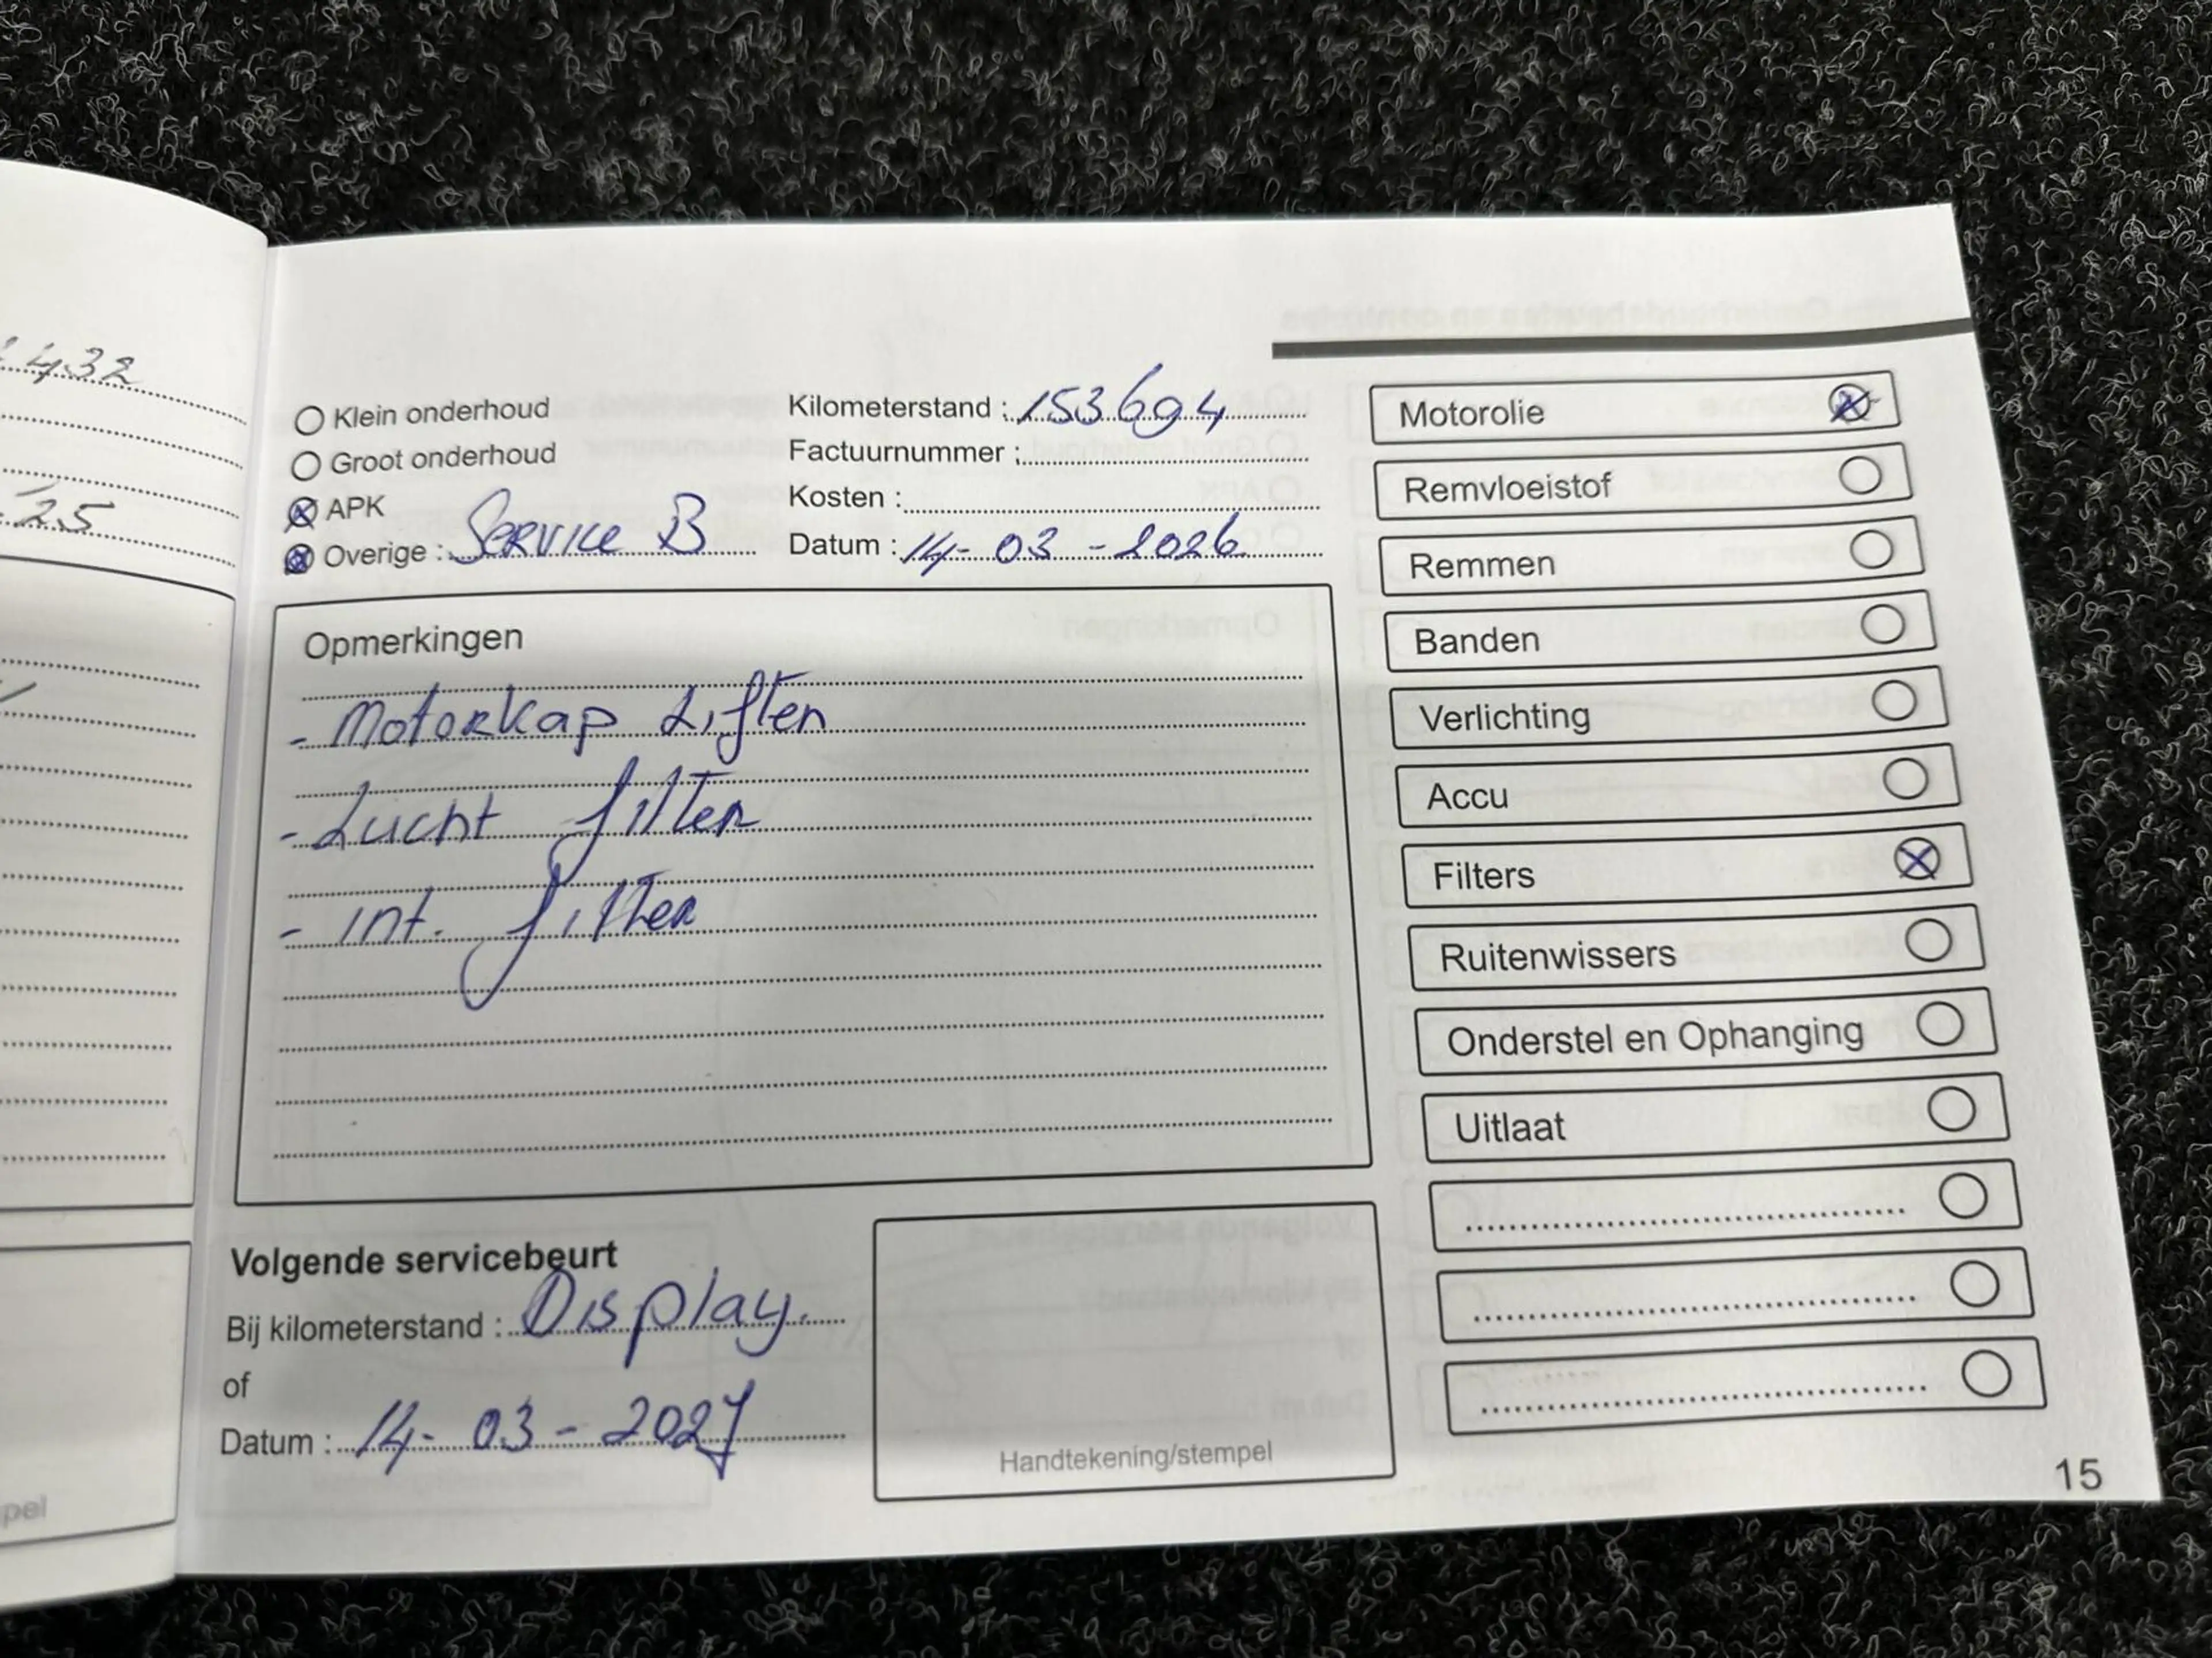 432
25
pel
Klein onderhoud
Groot onderhoud
APK
Overige : Service B
Kilometerstand : 153694
Factuurnummer :
Kosten :
Datum : 14-03-2026
Opmerkingen
- Motorkap Liften
- Lucht filter
- Int. filter
Volgende servicebeurt
Bij kilometerstand : Display.
of
Datum : 14-03-2027
Handtekening/stempel
Motorolie
Remvloeistof
Remmen
Banden
Verlichting
Accu
Filters
Ruitenwissers
Onderstel en Ophanging
Uitlaat
15